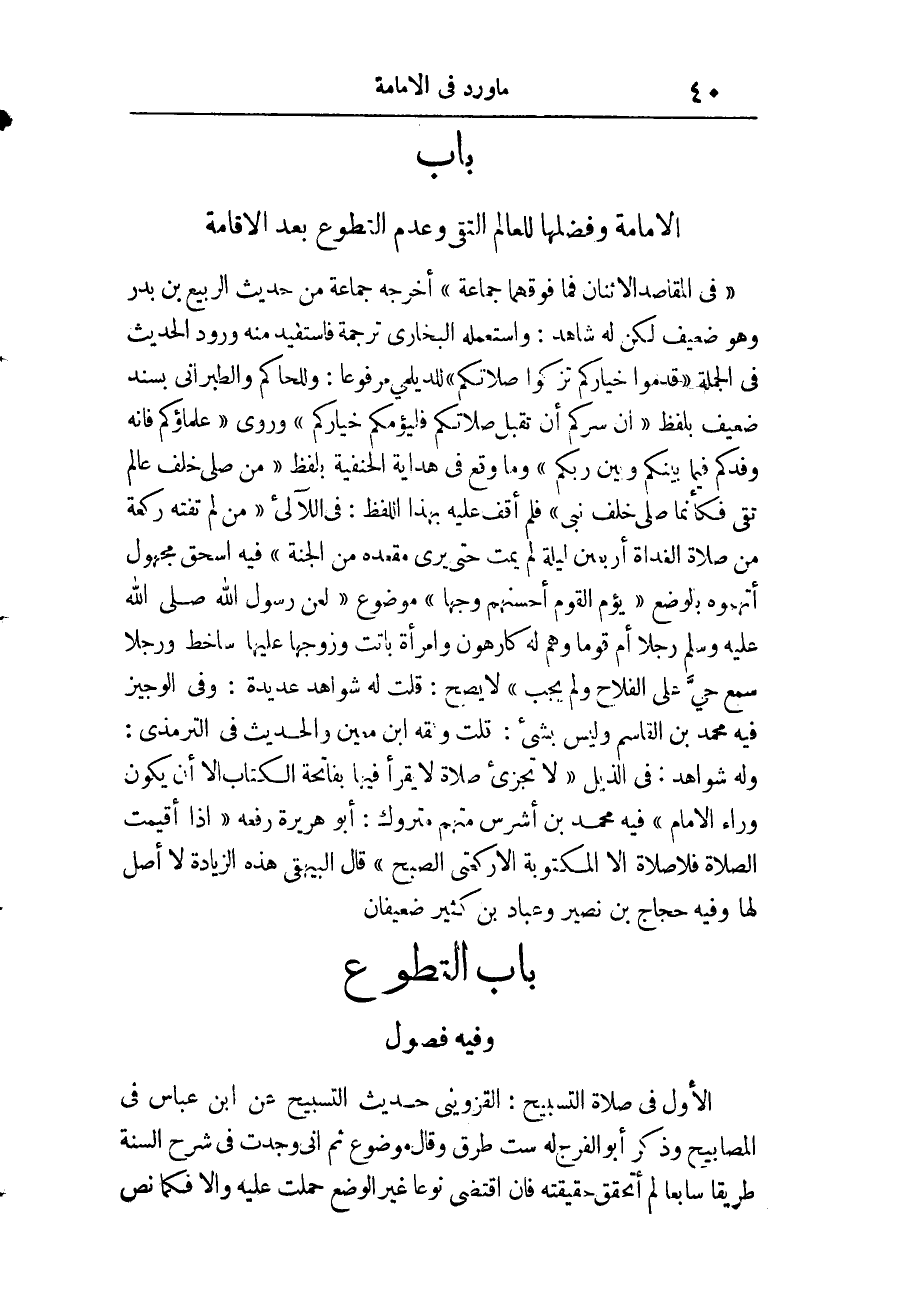 ٤٠ ماورد فى الامامة
باب
الامامة وفضلها للعالم التقى وعدم التطوع بعد الاقامة
« فى المقاصد الاثنان فما فوقهما جماعة » أخرجه جماعة من حديث الربيع بن بدر
وهو ضعيف لكن له شاهد : واستعمله البخارى ترجمة فاستفيد منه ورود الحديث
فى الجملة «قدموا خياركم تزكوا صلاتكم» للديلمي مرفوعا : وللحاكم والطبرانى بسند
ضعيف بلفظ « ان سركم أن تقبل صلاتكم فليؤمكم خياركم » وروى « علماؤكم فانه
وفدكم فيما بينكم وبين ربكم » وما وقع فى هداية الحنفية بلفظ « من صلى خلف عالم
تقى فكأنما صلى خلف نبى » فلم أقف عليه بهذا اللفظ : فى اللآلئ « من لم تفته ركعة
من صلاة الغداة أربعين ليلة لم يمت حتى يرى مقعده من الجنة » فيه اسحق مجهول
أتهموه بالوضع « يؤم القوم أحسنهم وجها » موضوع « لعن رسول الله صلى الله
عليه وسلم رجلا أم قوما وهم له كارهون وامرأة باتت وزوجها عليها ساخط ورجلا
سمع حيَّ على الفلاح ولم يجب » لايصح : قلت له شواهد عديدة : وفى الوجيز
فيه محمد بن القاسم وليس بشئ : قلت وثقه ابن معين والحديث فى الترمذى :
وله شواهد : فى الذيل « لا تجزئ صلاة لا يقرأ فيها بفاتحة الكتاب الا أن يكون
وراء الامام » فيه محمد بن أشرس متهم متروك : أبو هريرة رفعه « اذا أقيمت
الصلاة فلاصلاة الا المكتوبة الاركعتى الصبح » قال البيهقى هذه الزيادة لا أصل
لها وفيه حجاج بن نصير وعباد بن كثير ضعيفان
باب التطوع
وفيه فصول
الأول فى صلاة التسبيح : القزوينى حديث التسبيح عن ابن عباس فى
المصابيح وذكر أبو الفرج له ست طرق وقال موضوع ثم انى وجدت فى شرح السنة
طريقا سابعا لم أتحقق حقيقته فان اقتضى نوعا غير الوضع حملت عليه والا فكما نص